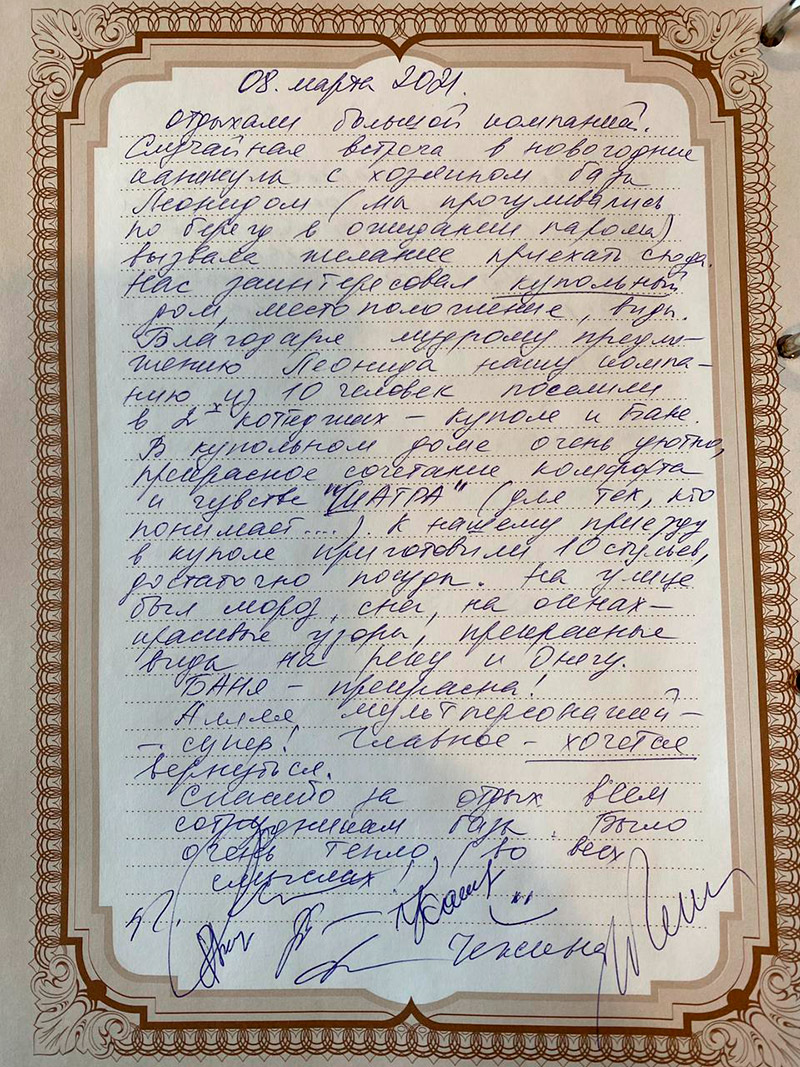 08. марта 2021.
отдыхали большой компанией.
Случайная встреча в новогодние
каникулы с хозяином базы
Леонидом (мы прогуливались
по берегу в ожидании парома)
вызвала желание приехать сюда.
Нас заинтересовал купольный
дом, местоположение, виды.
Благодаря мудрому предло-
жению Леонида нашу компа-
нию из 10 человек поселили
в 2х котеджах – куполе и Бане.
В купольном доме очень уютно,
прекрасное сочетание комфорта
и чувства "ШАТРА" (для тех, кто
понимает...). К нашему приезду
в куполе приготовили 10 стульев,
достаточно посуды. На улице
был мороз, снег, на окнах –
красивые узоры, прекрасные
виды на реку и Онегу.
БАНЯ – прекрасна!
Аллея мультперсонажей –
– супер! Главное – хочется
вернуться.
Спасибо за отдых всем
сотрудникам базы. Было
очень тепло, (во всех
смыслах)